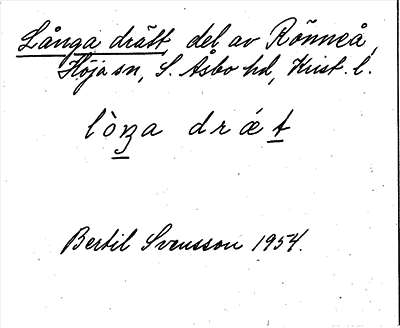 Långa drätt, del av Rönneå,
Höja sn, S. Åsbo hd, Krist. l.
lòŋa drǽt
Bertil Svensson 1954.